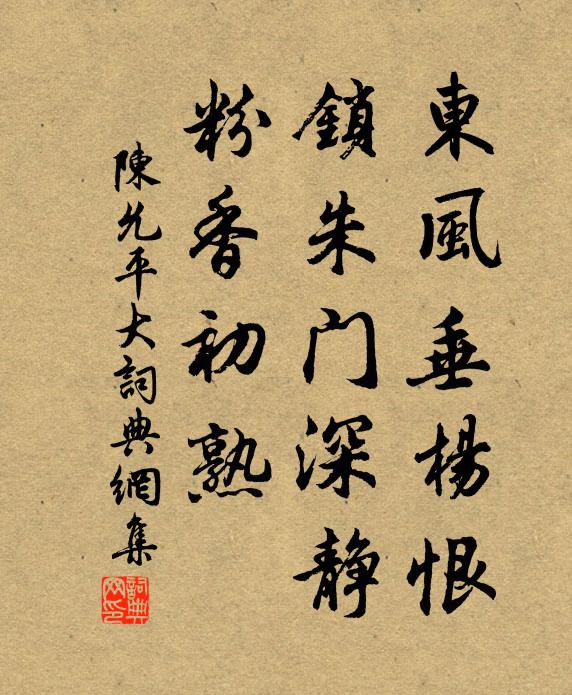 東風垂楊恨
鎖朱門深静
粉香初熟
陳允平大詞典網集
詞典网印